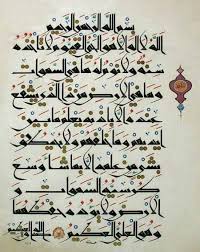 بسم الله الرحمن الرحيم
الله لا اله الا هو الحي القيوم لا تاخذه
سنة ولا نوم له ما في السموات
وما في الارض من ذا الذي يشفع
عنده الا باذنه يعلم ما بين
ايديهم وما خلفهم ولا يحيطون
بشيء من علمه الا بما شاء وسع
كرسيه السموات و
الارض ولا يوده حفظهما
وهو العلي العظيم